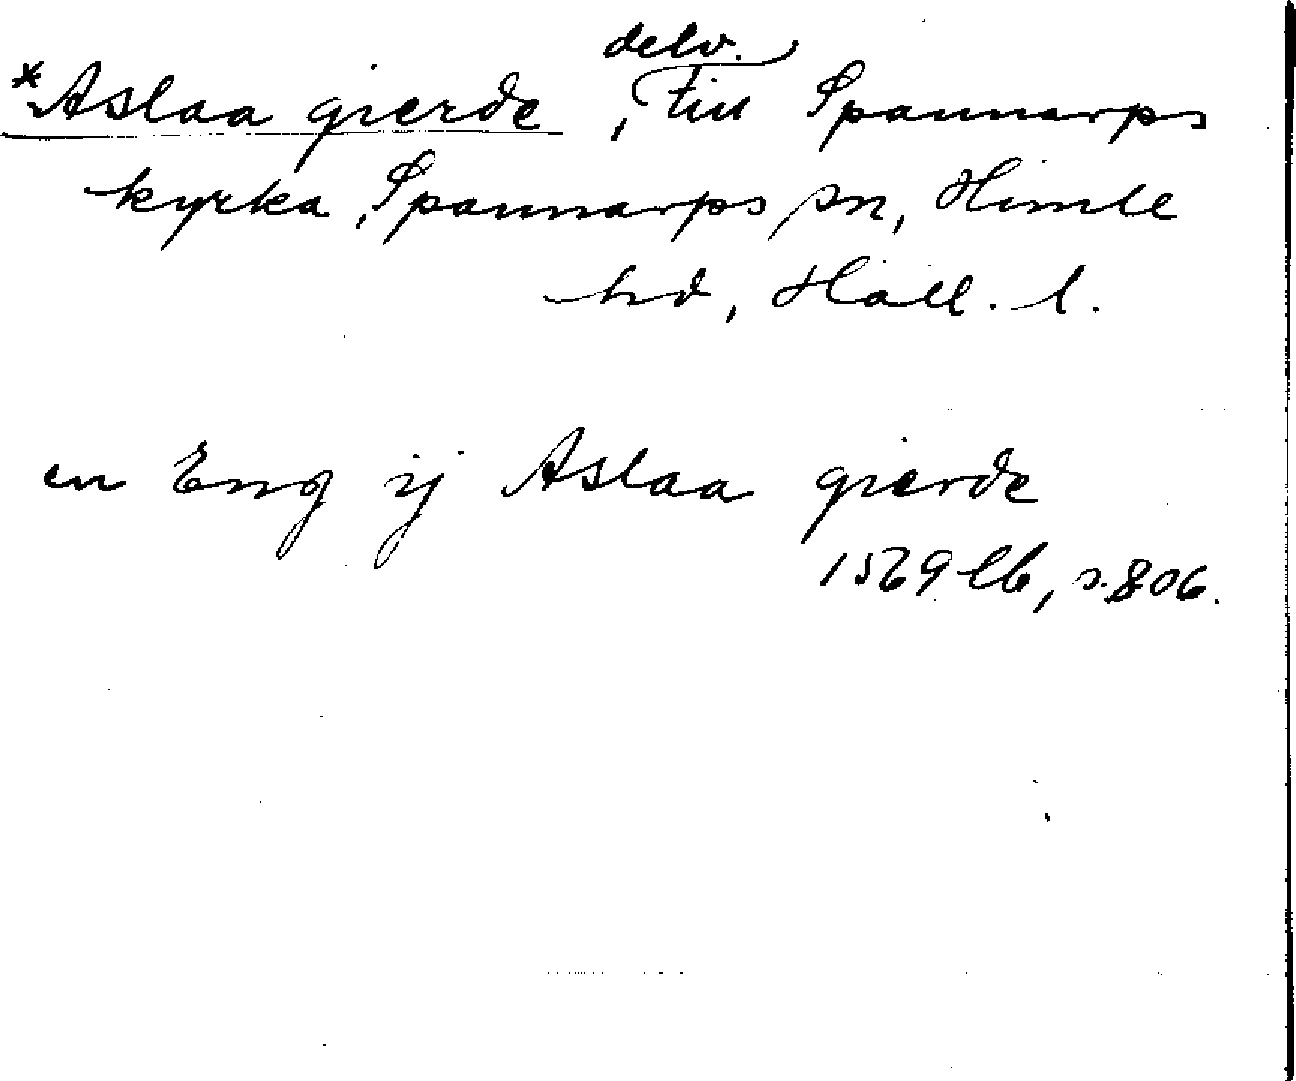 delv.
*Aslaa gierde, till Spannarps
kyrka, Spannarps sn, Himle
hd, Hall. l.
en Eng ij Aslaa gierde
1569 lb, s. 806.